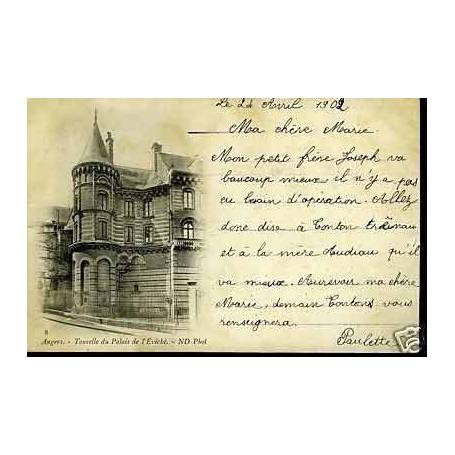 Le 24 Avril 1902
Ma chère Marie.
Mon petit frère Joseph va
baucoup mieux il n'y a pas
eu besoin d'opération. Allez
donc dire à Tonton
et à la mère Audiau qu'il
va mieux. Aurevoir ma chère
Marie, demain Tontons vous
renseignera.
Paulette
8
Angers. - Tourelle du Palais de l'Evêché. - ND Phot